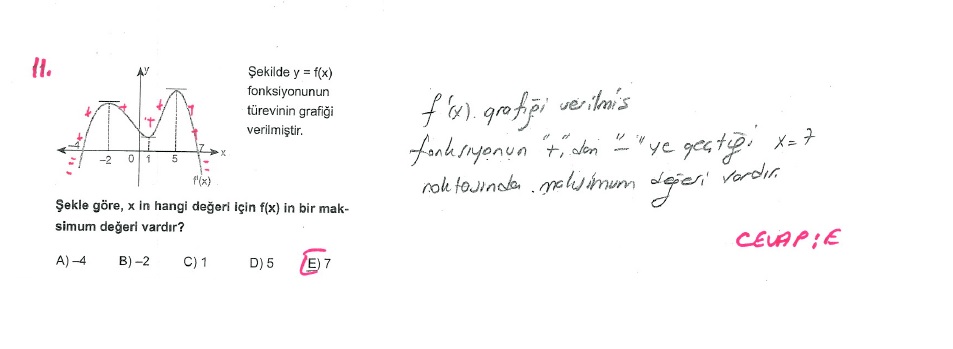 11.
y
-4
-2
0
1
5
7
x
f'(x)
Şekilde y = f(x)
fonksiyonunun
türevinin grafiği
verilmiştir.
Şekle göre, x in hangi değeri için f(x) in bir mak-
simum değeri vardır?
A) –4 B) –2 C) 1 D) 5 E) 7
f'(x). grafiği verilmiş
fonksıyonun "+" dan "–" ye geçtiği x=7
noktasında. maksimum değeri vardır.
CEVAP: E